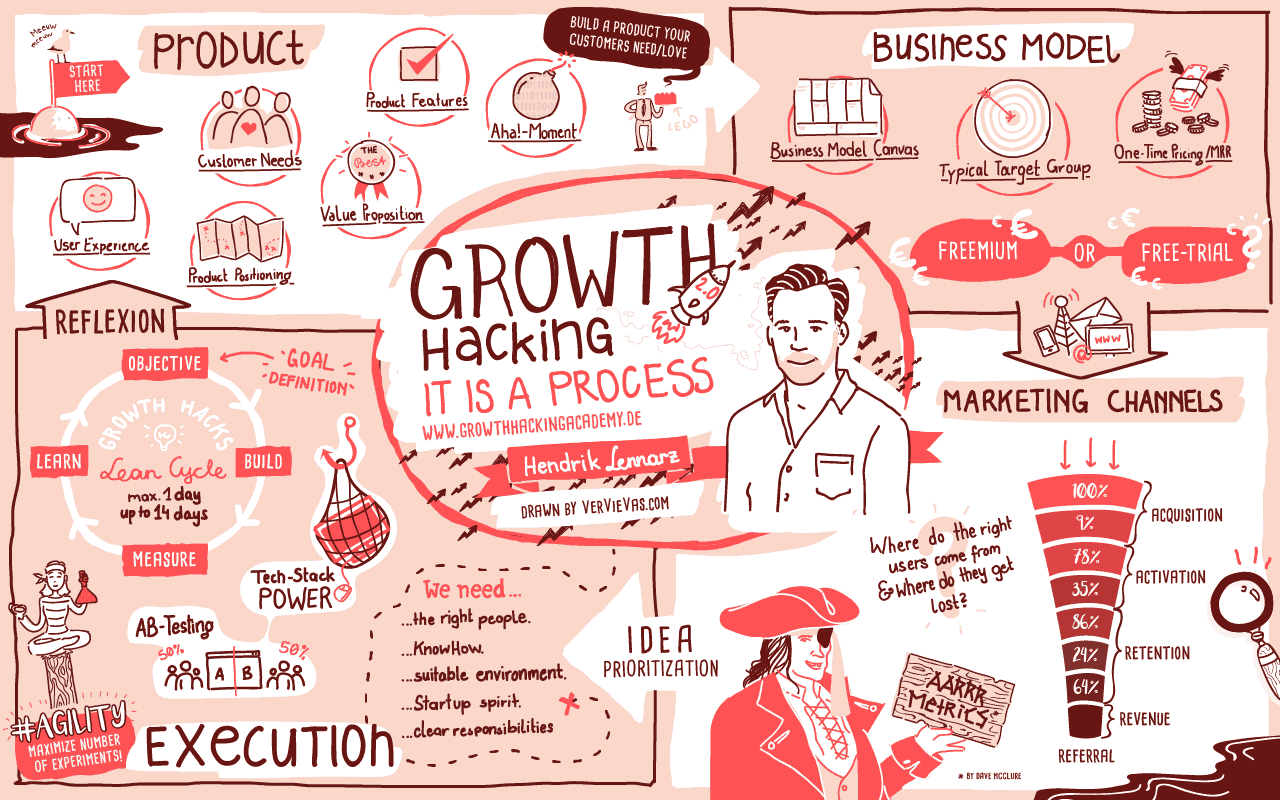 Meeuw
meeuw
START
HERE
PRODUCT
Customer Needs
Product Features
Aha!-Moment
THE
Best
Value Proposition
User Experience
Product Positioning
BUILD A PRODUCT YOUR
CUSTOMERS NEED/LOVE
LEGO
BUSINESS MODEL
Business Model Canvas
Typical Target Group
One-Time Pricing /MRR
FREEMIUM
OR
FREE-TRIAL
€
€
€
€
€
?
www
@
MARKETING CHANNELS
100%
9%
78%
35%
86%
24%
64%
ACQUISITION
ACTIVATION
RETENTION
REVENUE
REFERRAL
Where do the right
users come from
& where do they get
lost?
?
AARRR
METRICS*
* BY DAVE MCCLURE
IDEA
PRIORITIZATION
GROWTH
Hacking
2.0
IT IS A PROCESS
WWW.GROWTHHACKINGACADEMY.DE
Hendrik Lennarz
DRAWN BY VERVIEVAS.COM
We need...
...the right people.
...KnowHow.
...suitable environment.
...Startup spirit.
...clear responsibilities
EXECUTION
#AGILITY
MAXIMIZE NUMBER
OF EXPERIMENTS!
AB-Testing
50%
50%
A
B
Tech-Stack
POWER
REFLEXION
OBJECTIVE
GOAL
DEFINITION
GROWTH HACKS
Lean Cycle
max. 1 day
up to 14 days
LEARN
BUILD
MEASURE